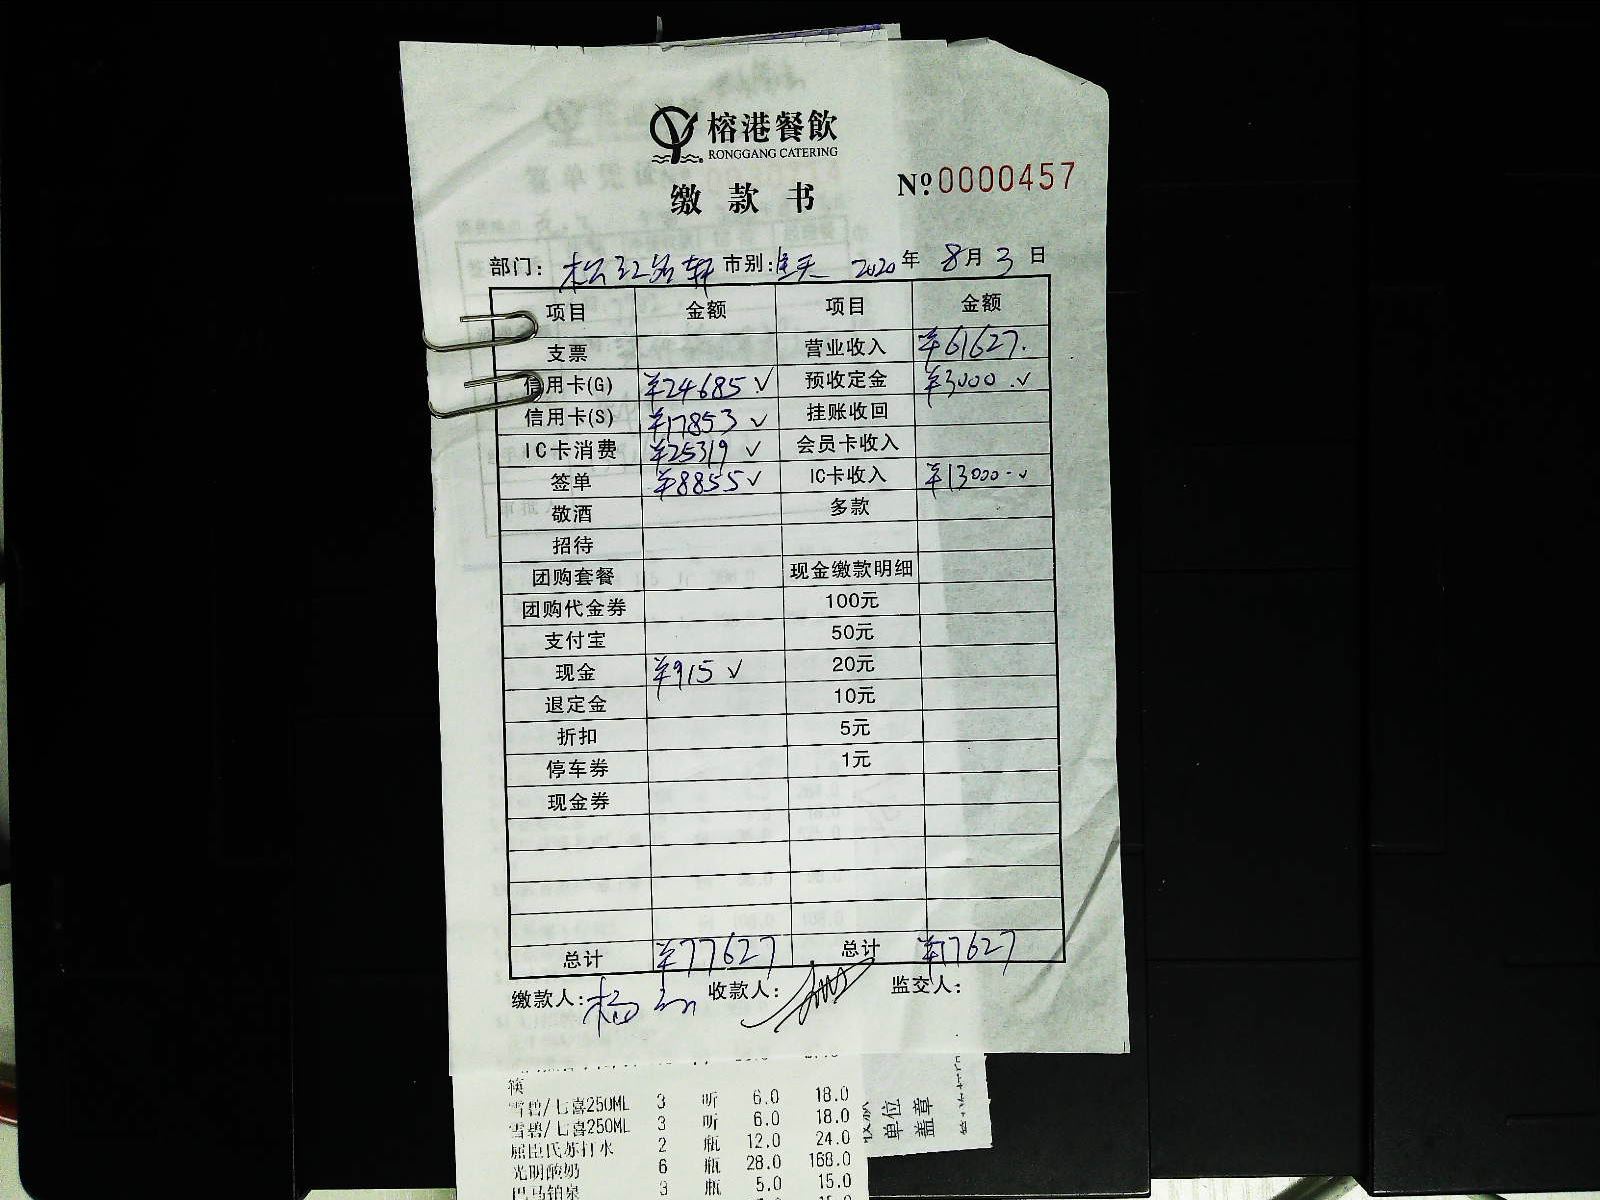 榕港餐飲
RONGGANG CATERING
缴款书
№0000457
部门： 市别: 2020年 8月 3 日
项目 金额 项目 金额
支票 营业收入 ¥61627.
信用卡(G) ¥24685 ✓ 预收定金 ¥3000.✓
信用卡(S) ¥17853 ✓ 挂账收回
IC卡消费 ¥25319 ✓ 会员卡收入
签单 ¥8855 ✓ IC卡收入 ¥13000-✓
敬酒 多款
招待
团购套餐 现金缴款明细
团购代金券 100元
支付宝 50元
现金 ¥915 ✓ 20元
退定金 10元
折扣 5元
停车券 1元
现金券
总计 ¥77627 总计 ¥17627
缴款人: 杨 收款人: 监交人:
筷
雪碧/七喜250ML 3 听 6.0 18.0
雪碧/七喜250ML 3 听 6.0 18.0
屈臣氏苏打水 2 瓶 12.0 24.0
光明酸奶 6 瓶 28.0 168.0
巴马铂泉 3 瓶 5.0 15.0
单位
盖章